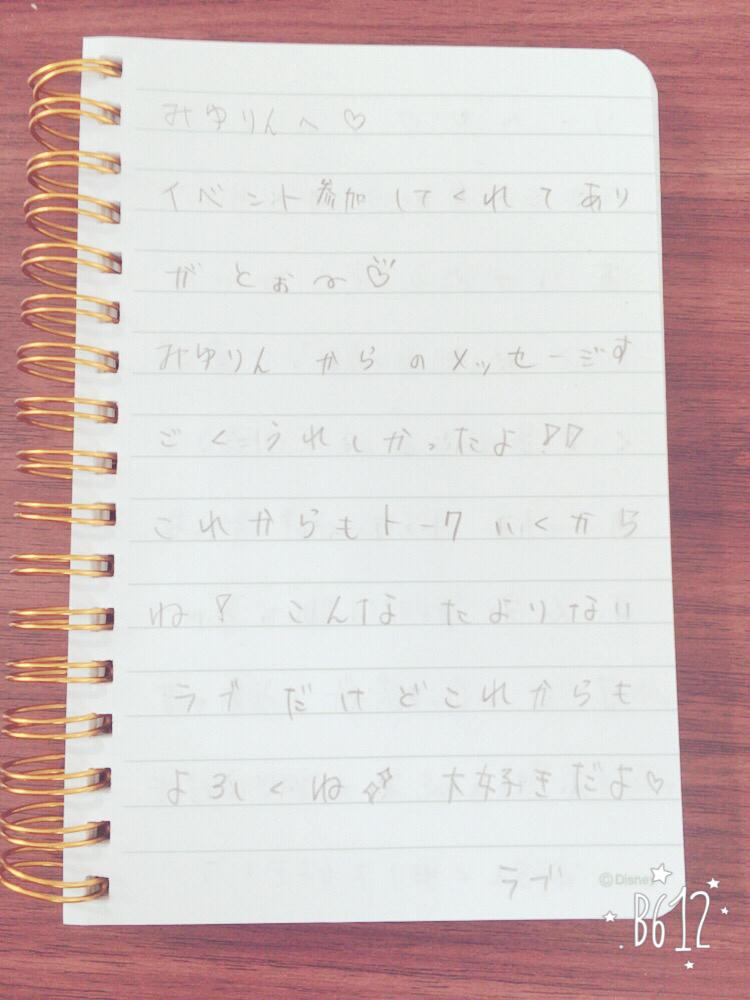 みゆりんへ♡
イベント参加してくれてあり
がとぉ〜♡
みゆりん からのメッセージす
ごくうれしかったよ♡♡
これからもトークいくから
ね! こんな たよりない
ラブ だけどこれからも
よろしくね✨ 大好きだよ♡
ラブ
©Disney
B612